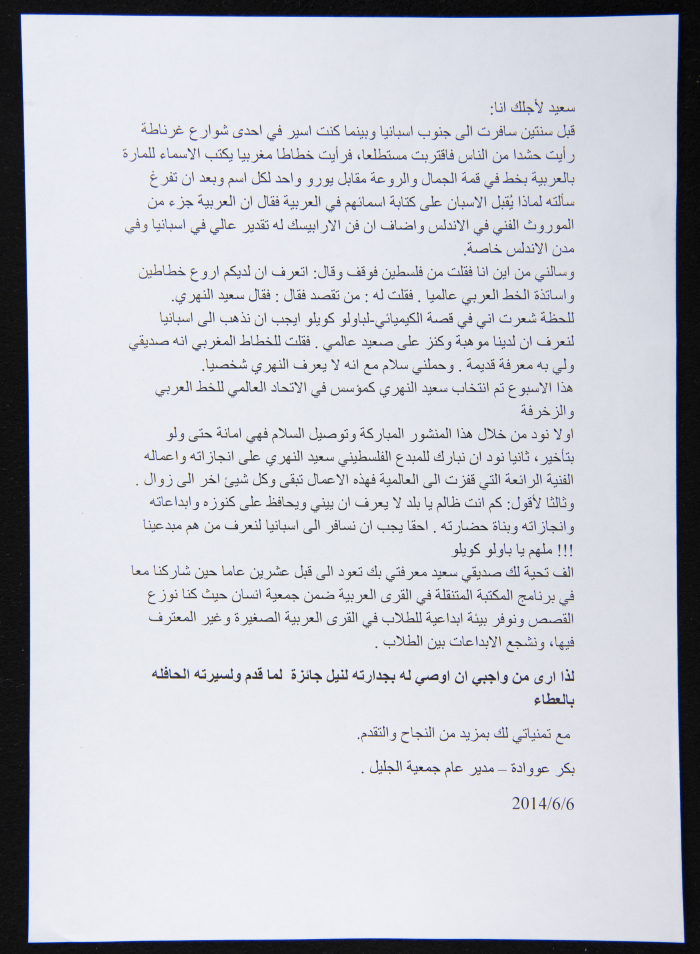 سعيد لأجلك انا:
قبل سنتين سافرت الى جنوب اسبانيا وبينما كنت اسير في احدى شوارع غرناطة
رأيت حشدا من الناس فاقتربت مستطلعا، فرأيت خطاطا مغربيا يكتب الاسماء للمارة
بالعربية بخط في قمة الجمال والروعة مقابل يورو واحد لكل اسم وبعد ان تفرغ
سألته لماذا يُقبل الاسبان على كتابة اسمائهم في العربية فقال ان العربية جزء من
الموروث الفني في الاندلس واضاف ان فن الارابيسك له تقدير عالي في اسبانيا وفي
مدن الاندلس خاصة.
وسالني من اين انا فقلت من فلسطين فوقف وقال: اتعرف ان لديكم اروع خطاطين
واساتذة الخط العربي عالميا . فقلت له : من تقصد فقال : فقال سعيد النهري.
للحظة شعرت اني في قصة الكيميائي-لباولو كويلو ايجب ان نذهب الى اسبانيا
لنعرف ان لدينا موهبة وكنز على صعيد عالمي . فقلت للخطاط المغربي انه صديقي
ولي به معرفة قديمة . وحملني سلام مع انه لا يعرف النهري شخصيا.
هذا الاسبوع تم انتخاب سعيد النهري كمؤسس في الاتحاد العالمي للخط العربي
والزخرفة
اولا نود من خلال هذا المنشور المباركة وتوصيل السلام فهي امانة حتى ولو
بتأخير، ثانيا نود ان نبارك للمبدع الفلسطيني سعيد النهري على انجازاته واعماله
الفنية الرائعة التي قفزت الى العالمية فهذه الاعمال تبقى وكل شيئ اخر الى زوال .
وثالثا لأقول: كم انت ظالم يا بلد لا يعرف ان يبني ويحافظ على كنوزه وابداعاته
وانجازاته وبناة حضارته . احقا يجب ان نسافر الى اسبانيا لنعرف من هم مبدعينا
!!! ملهم يا باولو كويلو
الف تحية لك صديقي سعيد معرفتي بك تعود الى قبل عشرين عاما حين شاركنا معا
في برنامج المكتبة المتنقلة في القرى العربية ضمن جمعية انسان حيث كنا نوزع
القصص ونوفر بيئة ابداعية للطلاب في القرى العربية الصغيرة وغير المعترف
فيها، ونشجع الابداعات بين الطلاب .
لذا ارى من واجبي ان اوصي له بجدارته لنيل جائزة لما قدم ولسيرته الحافله
بالعطاء
مع تمنياتي لك بمزيد من النجاح والتقدم.
بكر عووادة – مدير عام جمعية الجليل .
2014/6/6